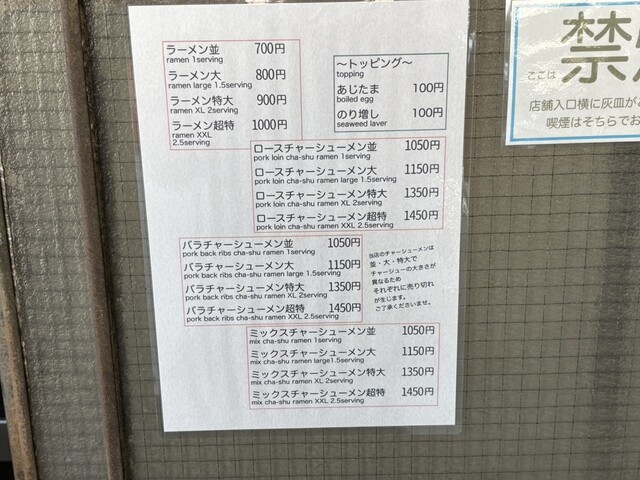 ラーメン並 700円
ramen 1serving
ラーメン大 800円
ramen large 1.5serving
ラーメン特大 900円
ramen XL 2serving
ラーメン超特 1000円
ramen XXL
2.5serving
〜トッピング〜
topping
あじたま 100円
boiled egg
のり増し 100円
seaweed laver
ロースチャーシューメン並 1050円
pork loin cha-shu ramen 1serving
ロースチャーシューメン大 1150円
pork loin cha-shu ramen large 1.5serving
ロースチャーシューメン特大 1350円
pork loin cha-shu ramen XL 2serving
ロースチャーシューメン超特 1450円
pork loin cha-shu ramen XXL 2.5serving
バラチャーシューメン並 1050円
pork back ribs cha-shu ramen 1serving
バラチャーシューメン大 1150円
pork back ribs cha-shu ramen large 1.5serving
バラチャーシューメン特大 1350円
pork back ribs cha-shu ramen XL 2serving
バラチャーシューメン超特 1450円
pork back ribs cha-shu ramen XXL 2.5serving
当店のチャーシューメンは
並・大・特大で
チャーシューの大きさが
異なるため
それぞれに売り切れ
が生じます。
ご了承くださいませ。
ミックスチャーシューメン並 1050円
mix cha-shu ramen 1serving
ミックスチャーシューメン大 1150円
mix cha-shu ramen large1.5serving
ミックスチャーシューメン特大 1350円
mix cha-shu ramen XL 2serving
ミックスチャーシューメン超特 1450円
mix cha-shu ramen XXL 2.5serving
ここは 禁
店舗入口横に灰皿が
喫煙はそちらでお